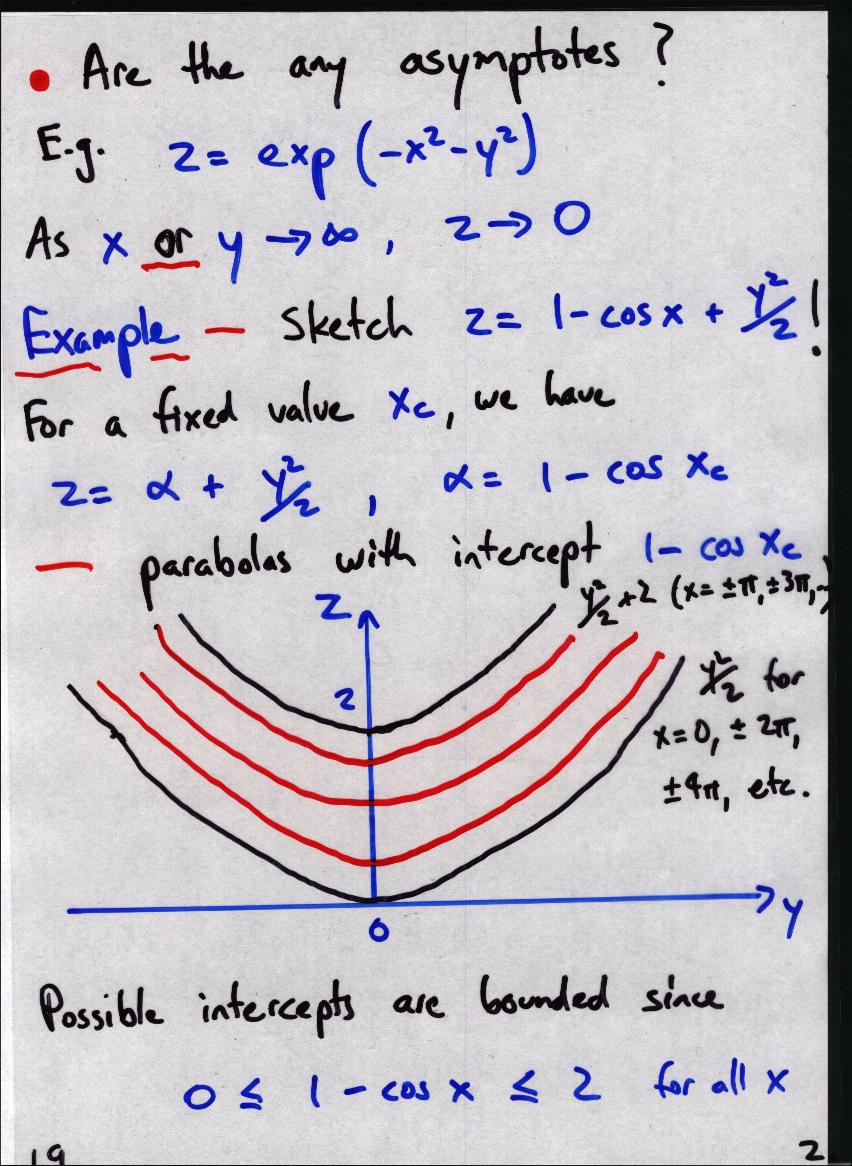 • Are the any asymptotes ?
E.g. z = exp (-x² - y²)
As x or y → ∞ , z → 0
Example — Sketch z = 1 - cos x + y²/2 !
For a fixed value x_c , we have
z = α + y²/2 , α = 1 - cos x_c
— parabolas with intercept 1 - cos x_c
z
y²/2 + 2 (x = ±π, ±3π, ~)
2
y²/2 for
x = 0, ± 2π,
± 4π, etc.
y
0
Possible intercepts are bounded since
0 ≤ 1 - cos x ≤ 2 for all x
19
2